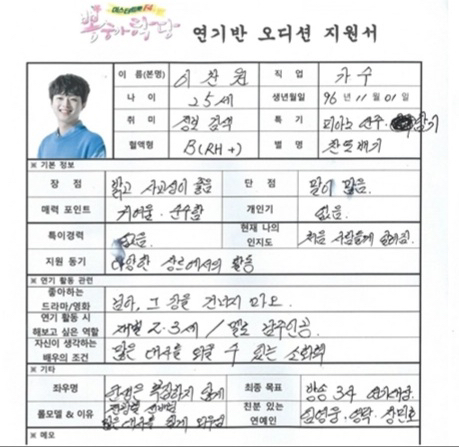 미스터트롯 F4
뽕숭아학당 연기반 오디션 지원서
이 름(본명) 이찬원 직 업 가수
나 이 25세 생년월일 96년 11월 01일
취 미 정보 검색 특 기 피아노 연주.
혈액형 B(RH+) 별 명 찬또배기
※ 기본 정보
장 점 밝고 사교성이 좋음 단 점 말이 많음.
매력 포인트 귀여움. 순수함 개인기 없음.
특이경력 없음. 현재 나의 인지도
지원 동기 다양한 장르에서의 활동
※ 연기 활동 관련
좋아하는 드라마/영화 님아, 그 강을 건너지 마오.
연기 활동 시 해보고 싶은 역할 재벌 2·3세 / 멜로 남주인공
자신이 생각하는 배우의 조건 많은 대사를 외울 수 있는
※ 기타
좌우명 최종 목표 방송 3사 연기대상
롤모델 & 이유 친분 있는 연예인 임영웅. 영탁. 장민호
※ 메모